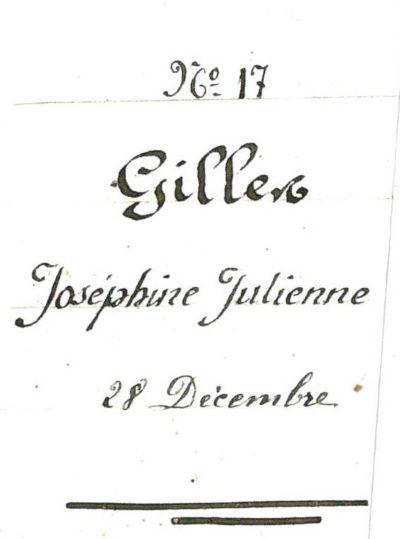 Nº 17
Gilles
Joséphine Julienne
28 Décembre